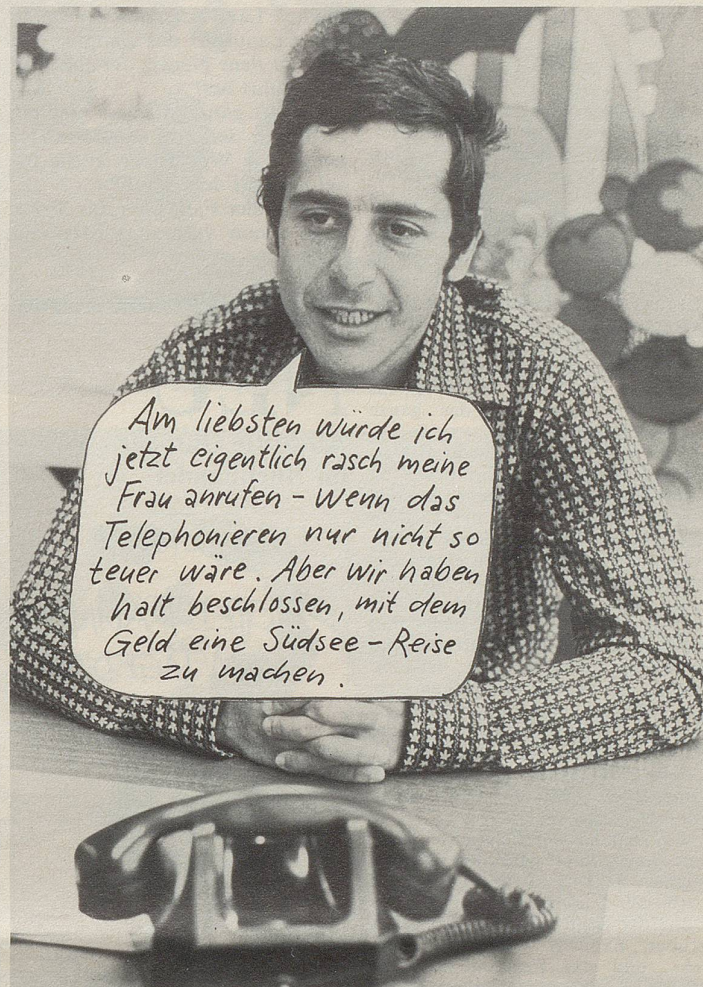 Am liebsten würde ich
jetzt eigentlich rasch meine
Frau anrufen – wenn das
Telephonieren nur nicht so
teuer wäre. Aber wir haben
halt beschlossen, mit dem
Geld eine Südsee-Reise
zu machen.